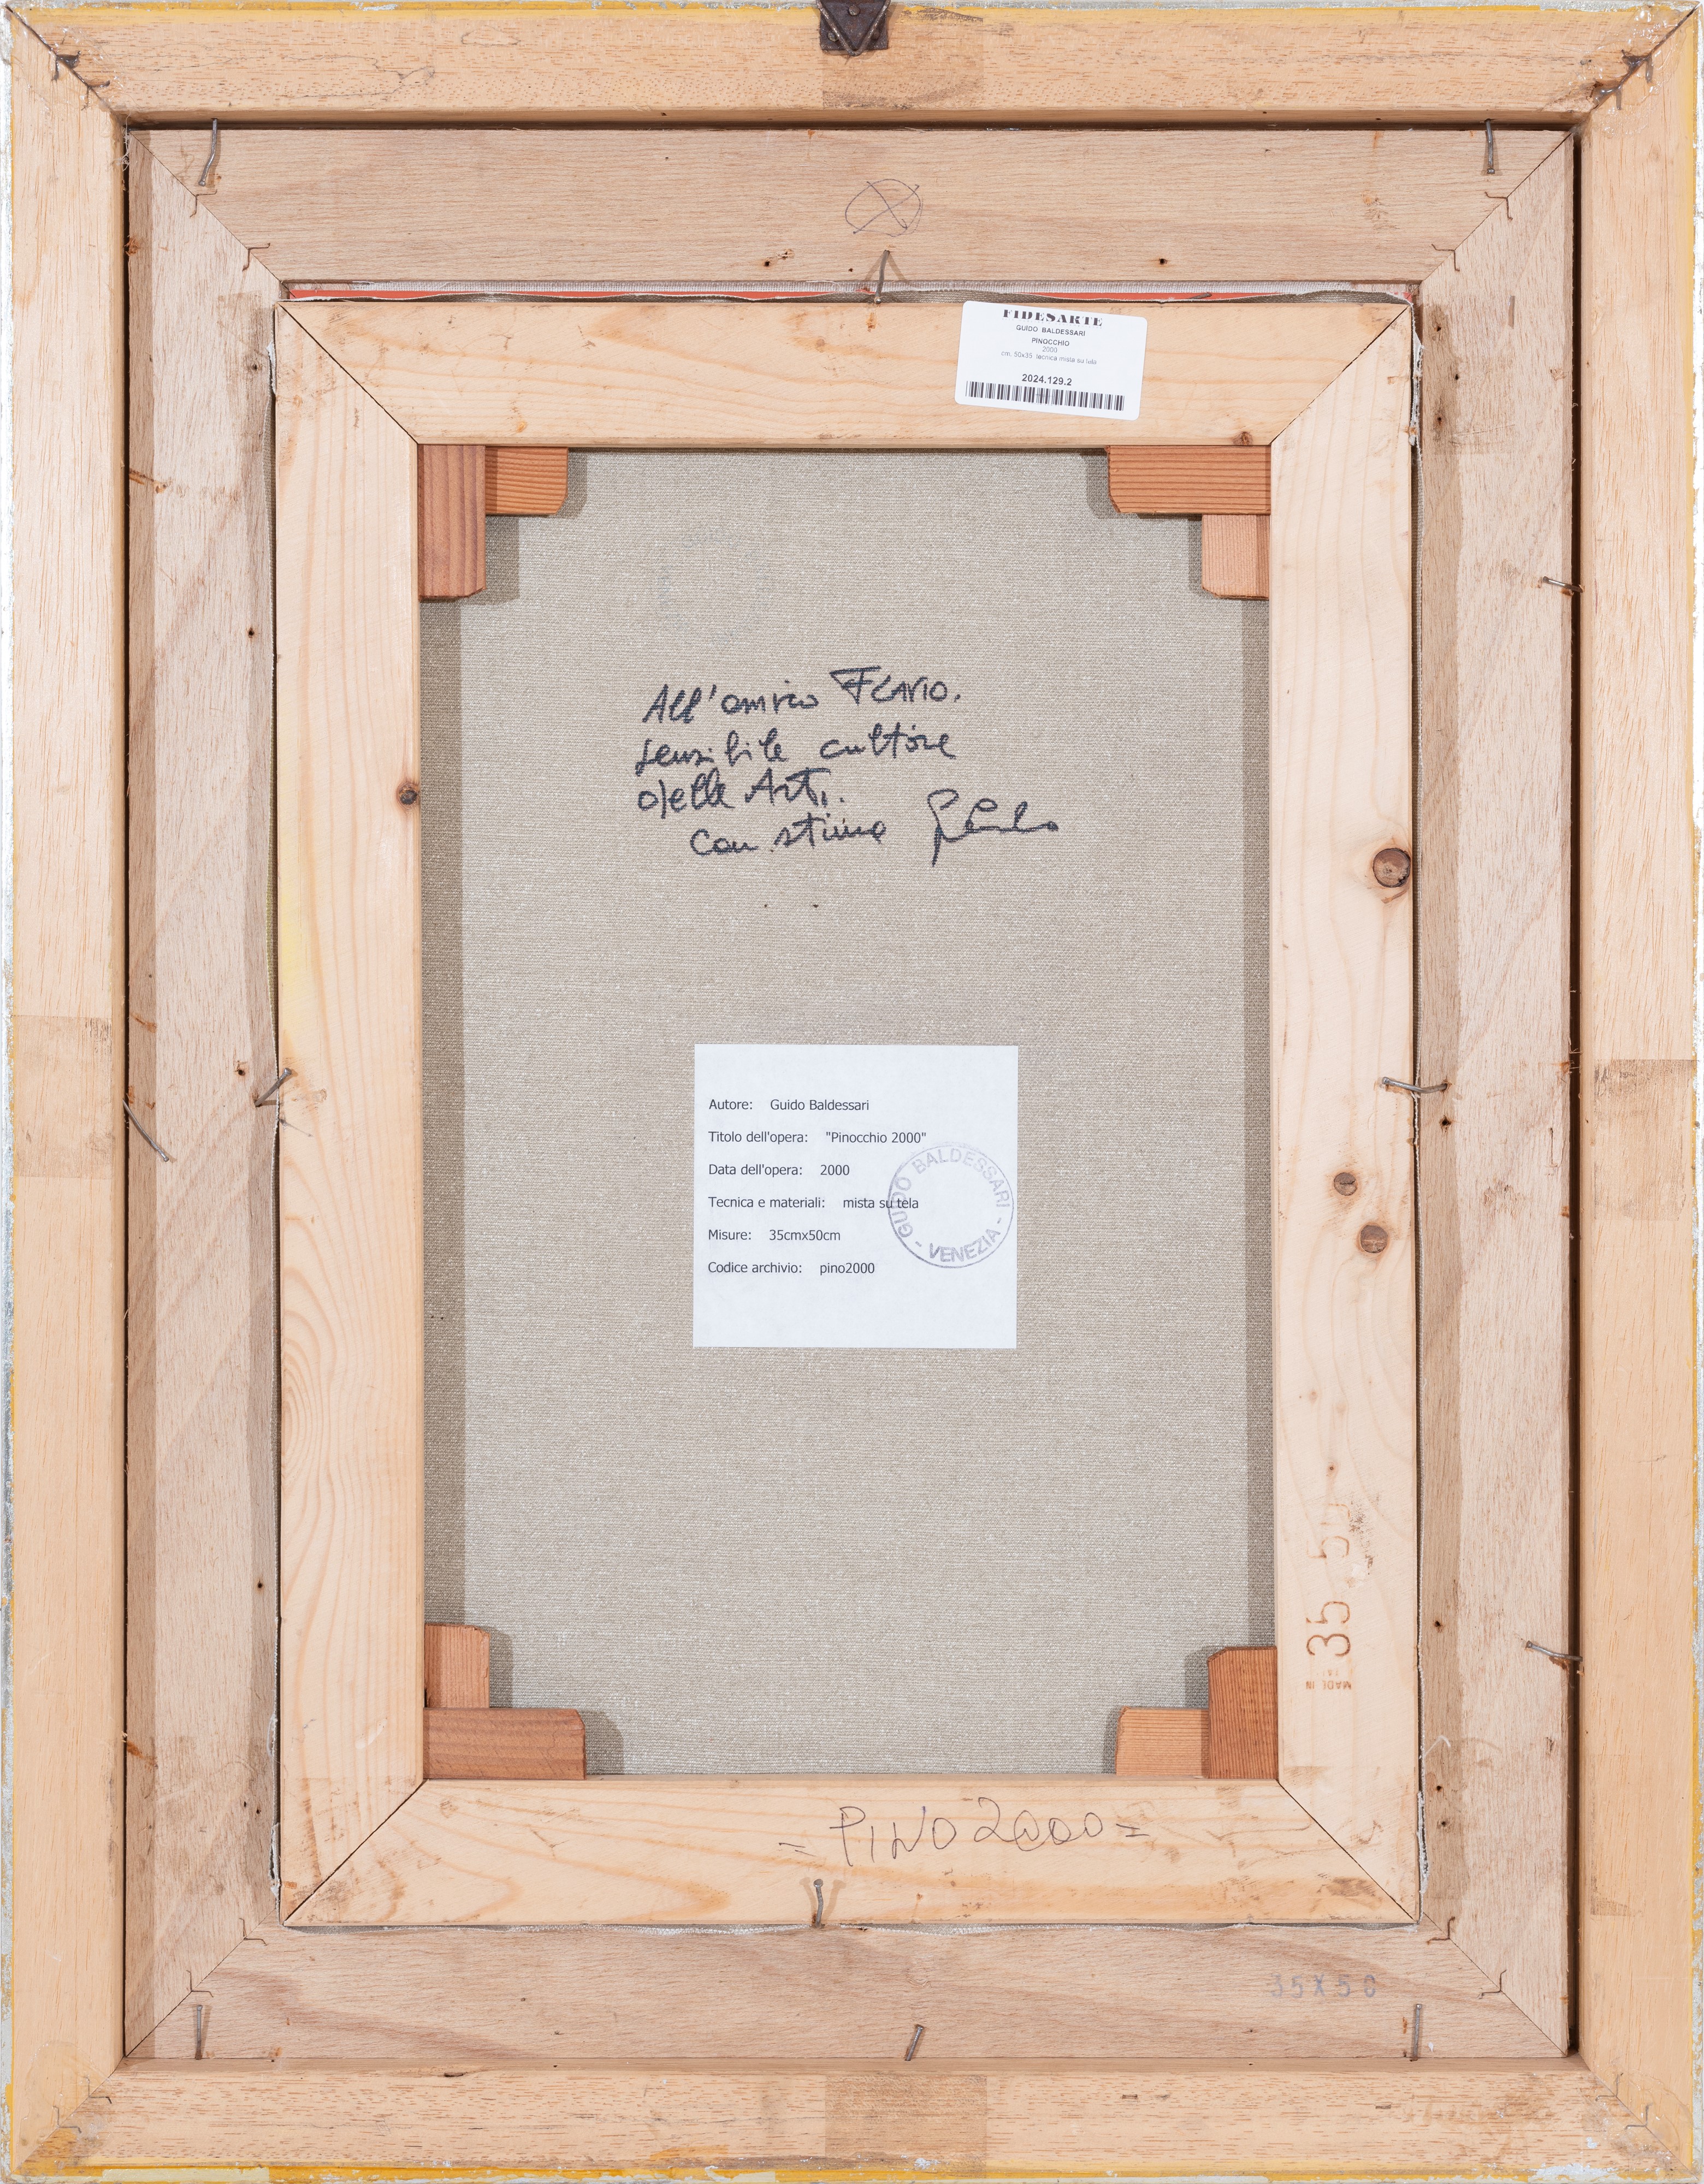 FIDESARTE
GUIDO BALDESSARI
PINOCCHIO
2000
cm. 50x35 tecnica mista su tela
2024.129.2
All'amico Flavio.
sensibile cultore
delle Arti.
con stima
Autore: Guido Baldessari
Titolo dell'opera: "Pinocchio 2000"
Data dell'opera: 2000
Tecnica e materiali: mista su tela
Misure: 35cmx50cm
Codice archivio: pino2000
GUIDO BALDESSARI - VENEZIA -
35 50
MADE IN
= PINO 2000 =
35X50